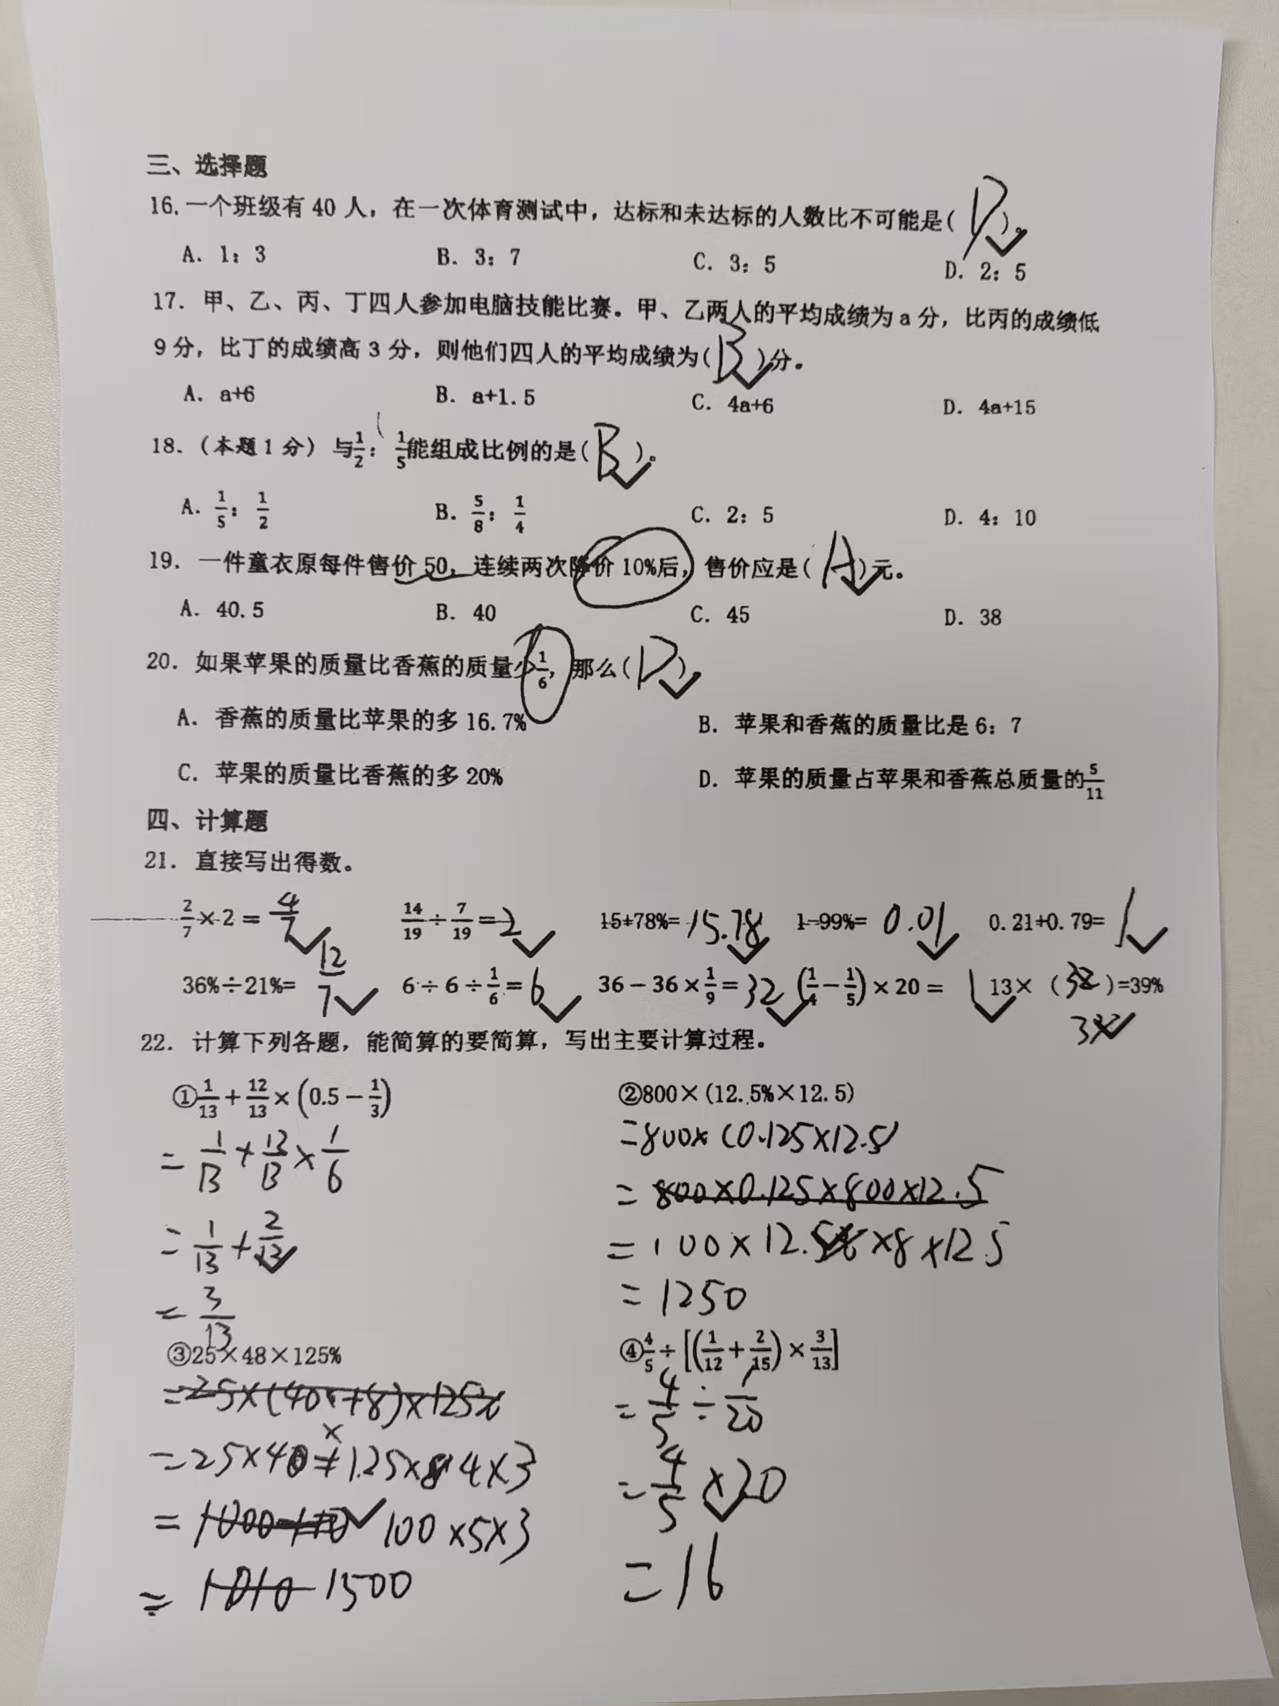 三、选择题
16. 一个班级有 40 人，在一次体育测试中，达标和未达标的人数比不可能是( D )。
A. 1：3 B. 3：7 C. 3：5 D. 2：5
17. 甲、乙、丙、丁四人参加电脑技能比赛。甲、乙两人的平均成绩为 a 分，比丙的成绩低
9 分，比丁的成绩高 3 分，则他们四人的平均成绩为( B )分。
A. a+6 B. a+1.5 C. 4a+6 D. 4a+15
18. （本题 1 分）与1/2：1/5能组成比例的是( B )。
A. 1/5：1/2 B. 5/8：1/4 C. 2：5 D. 4：10
19. 一件童衣原每件售价 50，连续两次降价 10%后，售价应是( A )元。
A. 40.5 B. 40 C. 45 D. 38
20. 如果苹果的质量比香蕉的质量少1/6，那么( D )
A. 香蕉的质量比苹果的多 16.7% B. 苹果和香蕉的质量比是 6：7
C. 苹果的质量比香蕉的多 20% D. 苹果的质量占苹果和香蕉总质量的5/11
四、计算题
21. 直接写出得数。
2/7×2 = 4/7 14/19÷7/19= 2 15+78%= 15.78 1-99%= 0.01 0.21+0.79= 1
36%÷21%= 12/7 6÷6÷1/6= 6 36－36×1/9= 32 (1/4－1/5)×20 = 1 13×( )=39%
22. 计算下列各题，能简算的要简算，写出主要计算过程。
①1/13+12/13×(0.5－1/3) ②800×(12.5%×12.5)
= 1/13 + 12/13 × 1/6 =800×(0.125×12.5)
= 1/13 + 2/13 = 800×0.125×800×12.5
= 3/13 = 100×12.5 ×8×12.5
= 1250
③25×48×125% ④4/5÷[(1/12+2/15)×3/13]
=25×(40+8)×125% = 4/5 ÷ 1/20
=25×40 1.25× 4×3 = 4/5 ×20
= 100×5×3 = 16
= 1010 1500